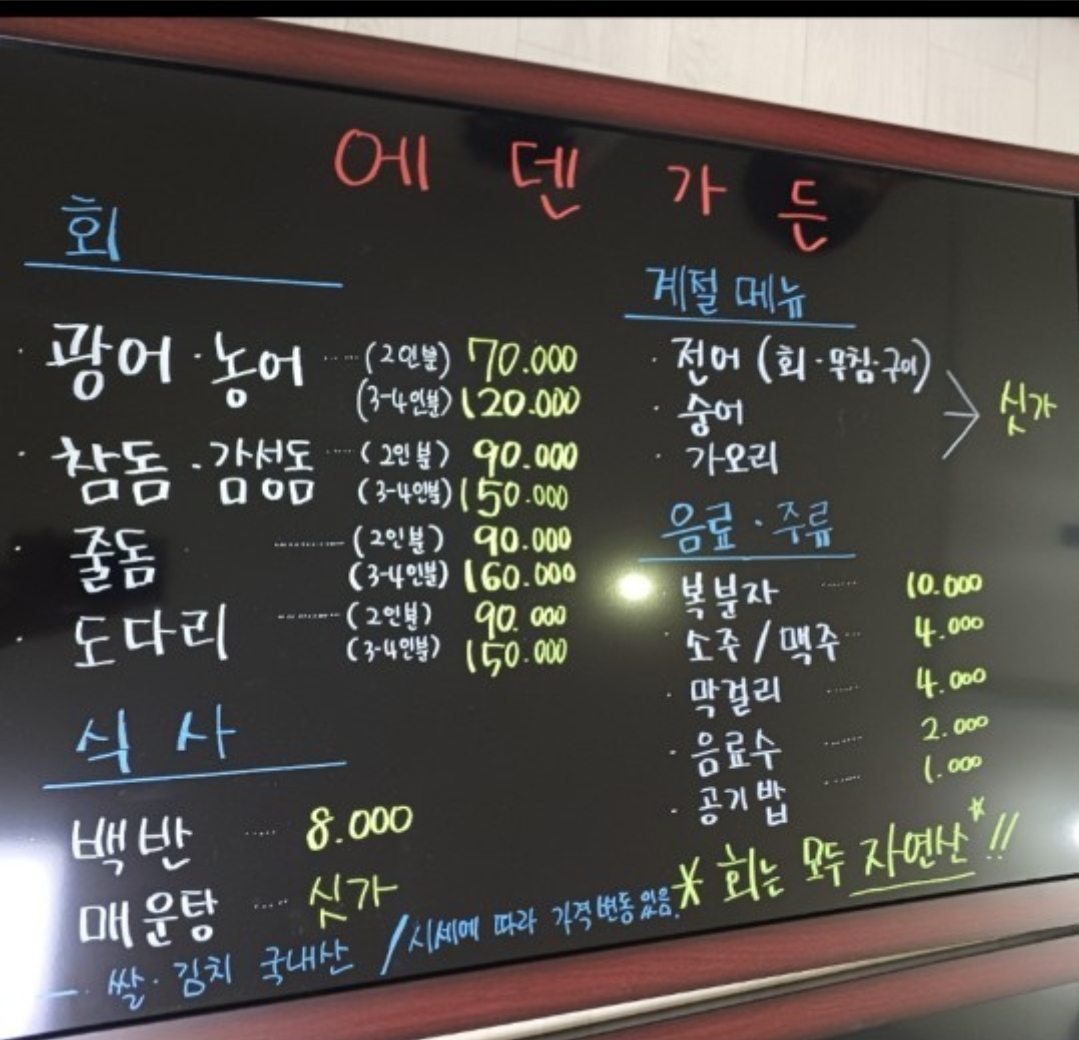 에덴가든
회
· 광어 · 농어 ······ (2인분) 70.000
(3-4인분) 120.000
· 참돔 · 감성돔 ······ (2인분) 90.000
(3-4인분) 150.000
· 줄돔 ············ (2인분) 90.000
(3-4인분) 160.000
· 도다리 ············ (2인분) 90.000
(3-4인분) 150.000
식사
백반 ······ 8.000
매운탕 ······ 싯가
쌀 · 김치 국내산 / 시세에 따라 가격변동있음.
계절 메뉴
· 전어 (회 · 무침 · 구이)
· 숭어
· 가오리
> 싯가
음료 · 주류
· 복분자 ······ 10.000
· 소주 / 맥주 ··· 4.000
· 막걸리 ······ 4.000
· 음료수 ······ 2.000
· 공기밥 ······ 1.000
* 회는 모두 자연산* !!